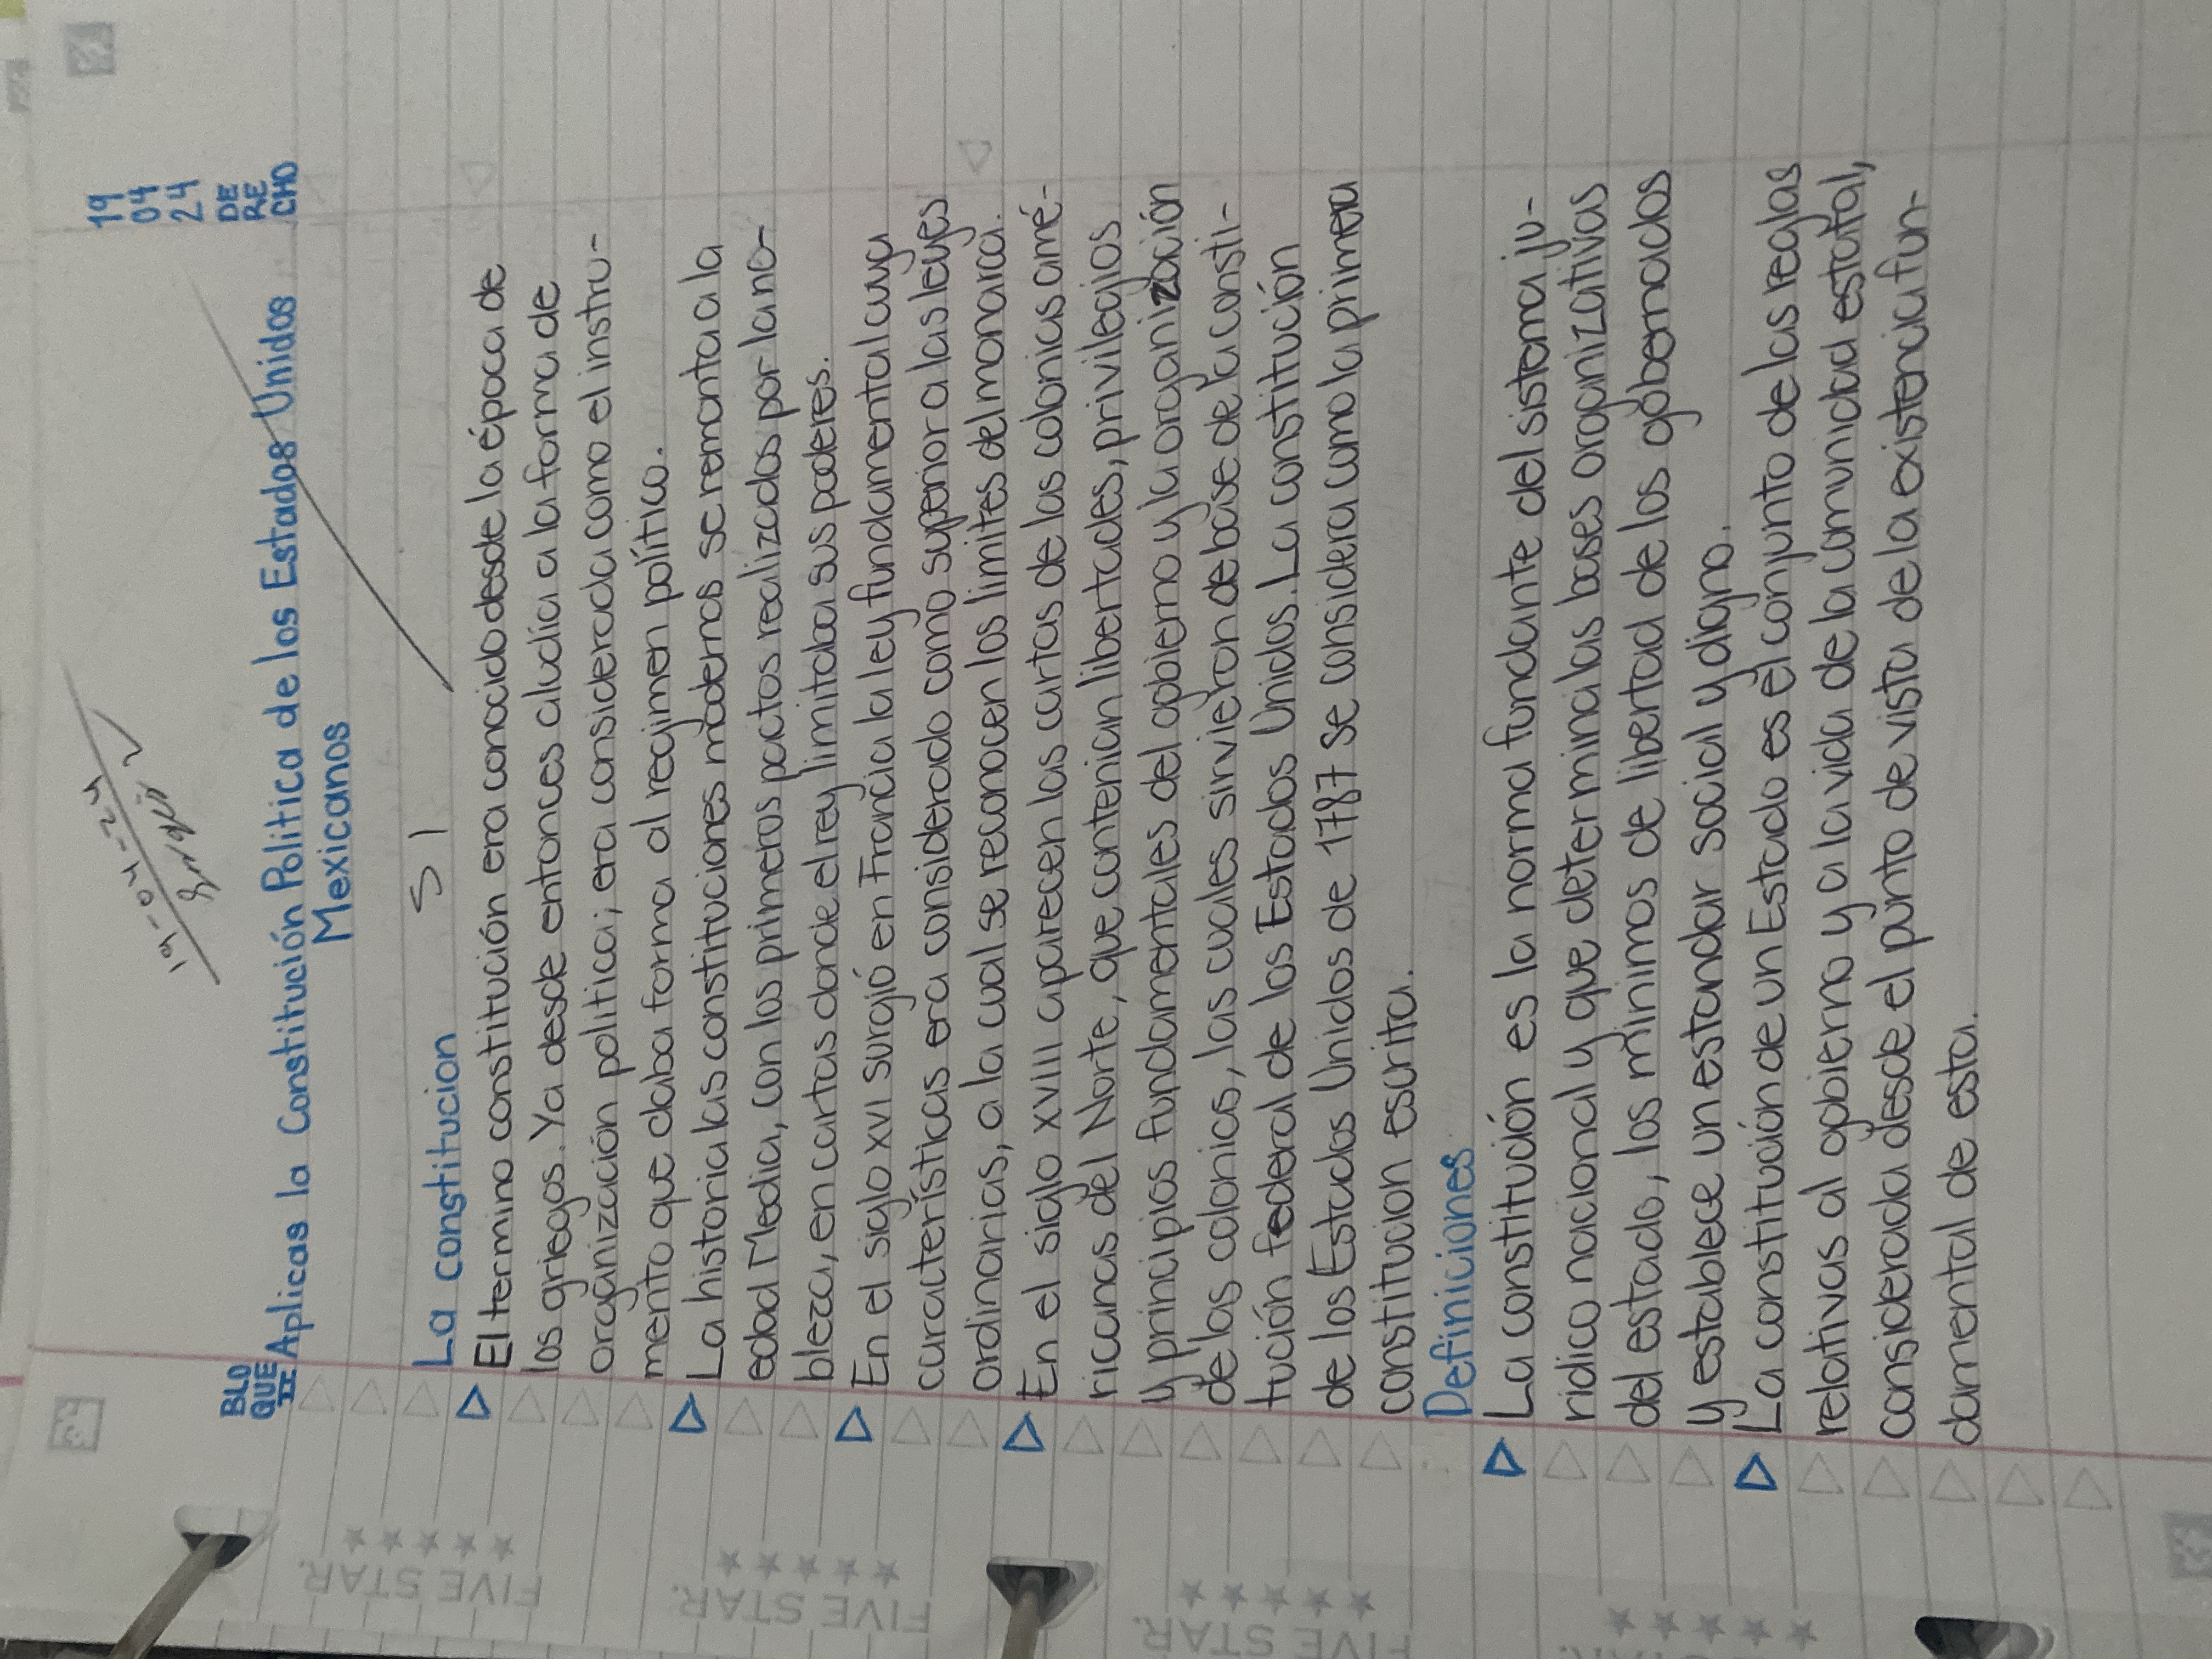 19
04
24
DE
RE
CHO
19-04-24
BLO
QUE
II
Aplicas la Constitución Politica de los Estados Unidos
Mexicanos
La constitucion
S I
El termino constitución era conocido desde la época de
los griegos. Ya desde entonces aludía a la forma de
organización politica; era considerada como el instru-
mento que daba forma al regimen político.
La historia las constituciones modernas se remonta a la
edad Media, con los primeros pactos realizados por la no-
bleza, en cartas donde el rey limitaba sus poderes.
En el siglo XVI surgió en Francia la ley fundamental cuya
características era considerado como superior a las leyes
ordinarias, a la cual se reconocen los limites del monarca.
En el siglo XVIII aparecen las cartas de las colonias amé-
ricanas del Norte, que contenian libertades, privilegios
y principios fundamentales del gobierno y la organización
de las colonias, las cuales sirvieron de base de la consti-
tución federal de los Estados Unidos. La constitución
de los Estados Unidos de 1787 se considera como la primera
constitucion escrita.
Definiciones
La constitución es la norma fundante del sistema ju-
ridico nacional y que determina las bases organizativas
del estado, los mínimos de libertad de los gobernados
y establece un estandar social y digno.
La constitución de un Estado es el conjunto de las reglas
relativas al gobierno y a la vida de la comunidad estatal,
considerada desde el punto de vista de la existencia fun-
damental de esta.
FIVE STAR.
FIVE STAR.
FIVE STAR.
STAR.